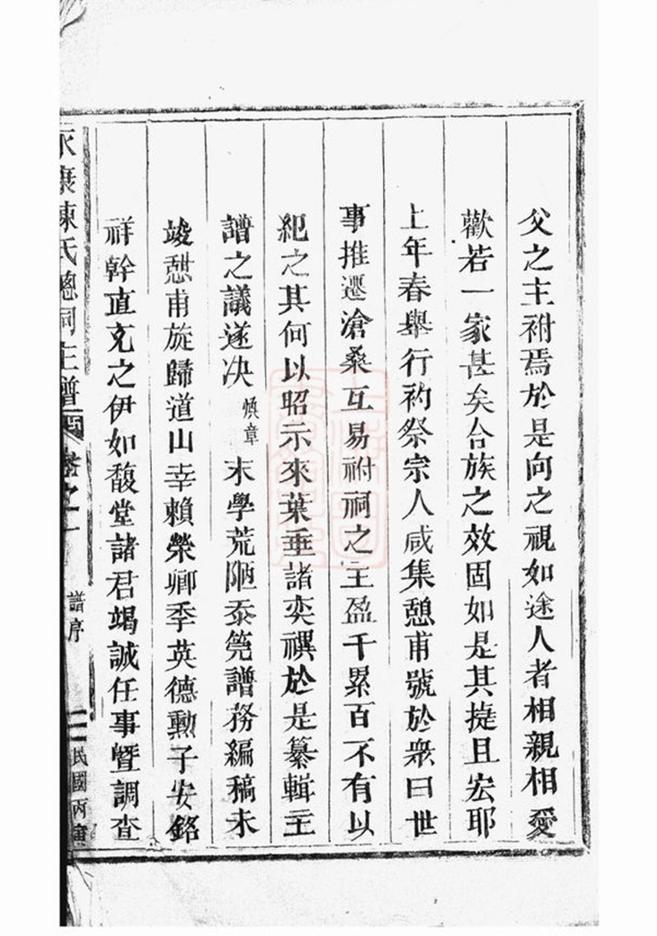 父之主祔焉於是向之視如途人者相親相愛
歡若一家甚矣合族之效固如是其捷且宏耶
上年春舉行礿祭宗人咸集憩甫號於衆曰世
事推遷滄桑互易祔祠之主盈千累百不有以
紀之其何以昭示來葉垂諸奕禩於是纂輯主
譜之議遂决煥章末學荒陋忝筦譜務編稿未
竣憇甫旋歸道山幸賴榮卿季英德勳子安銘
祥幹直克之伊如馥堂諸君竭誠任事暨調查
永康陳氏總祠主譜 卷之一 譜序 民國丙